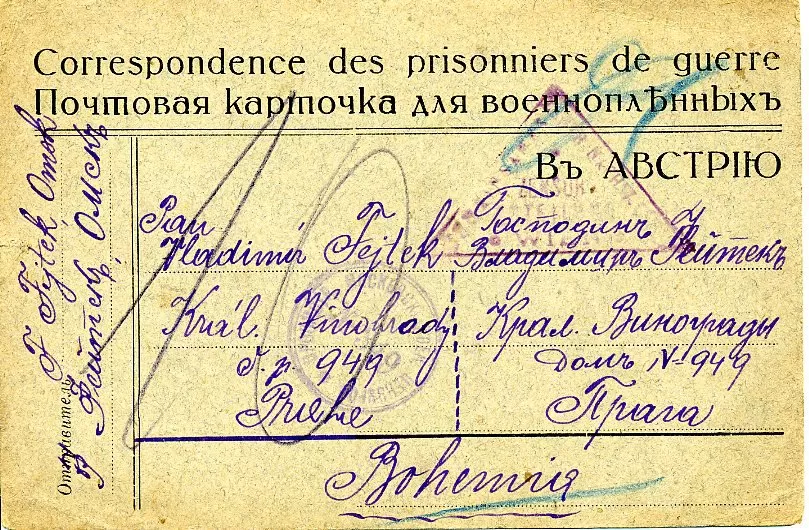 Correspondence des prisonniers de guerre
Почтовая карточка для военноплѣнныхъ
Въ АВСТРІЮ
Pan
Vladimír Fejtek
Král. Vinohrady
949
Господинъ
Владимиръ Фейтекъ
Крал. Винограды
Домъ № 949
Прага
Bohemia
Отправитель
F Fejtek, Omsk
Фейтекъ, Омскъ